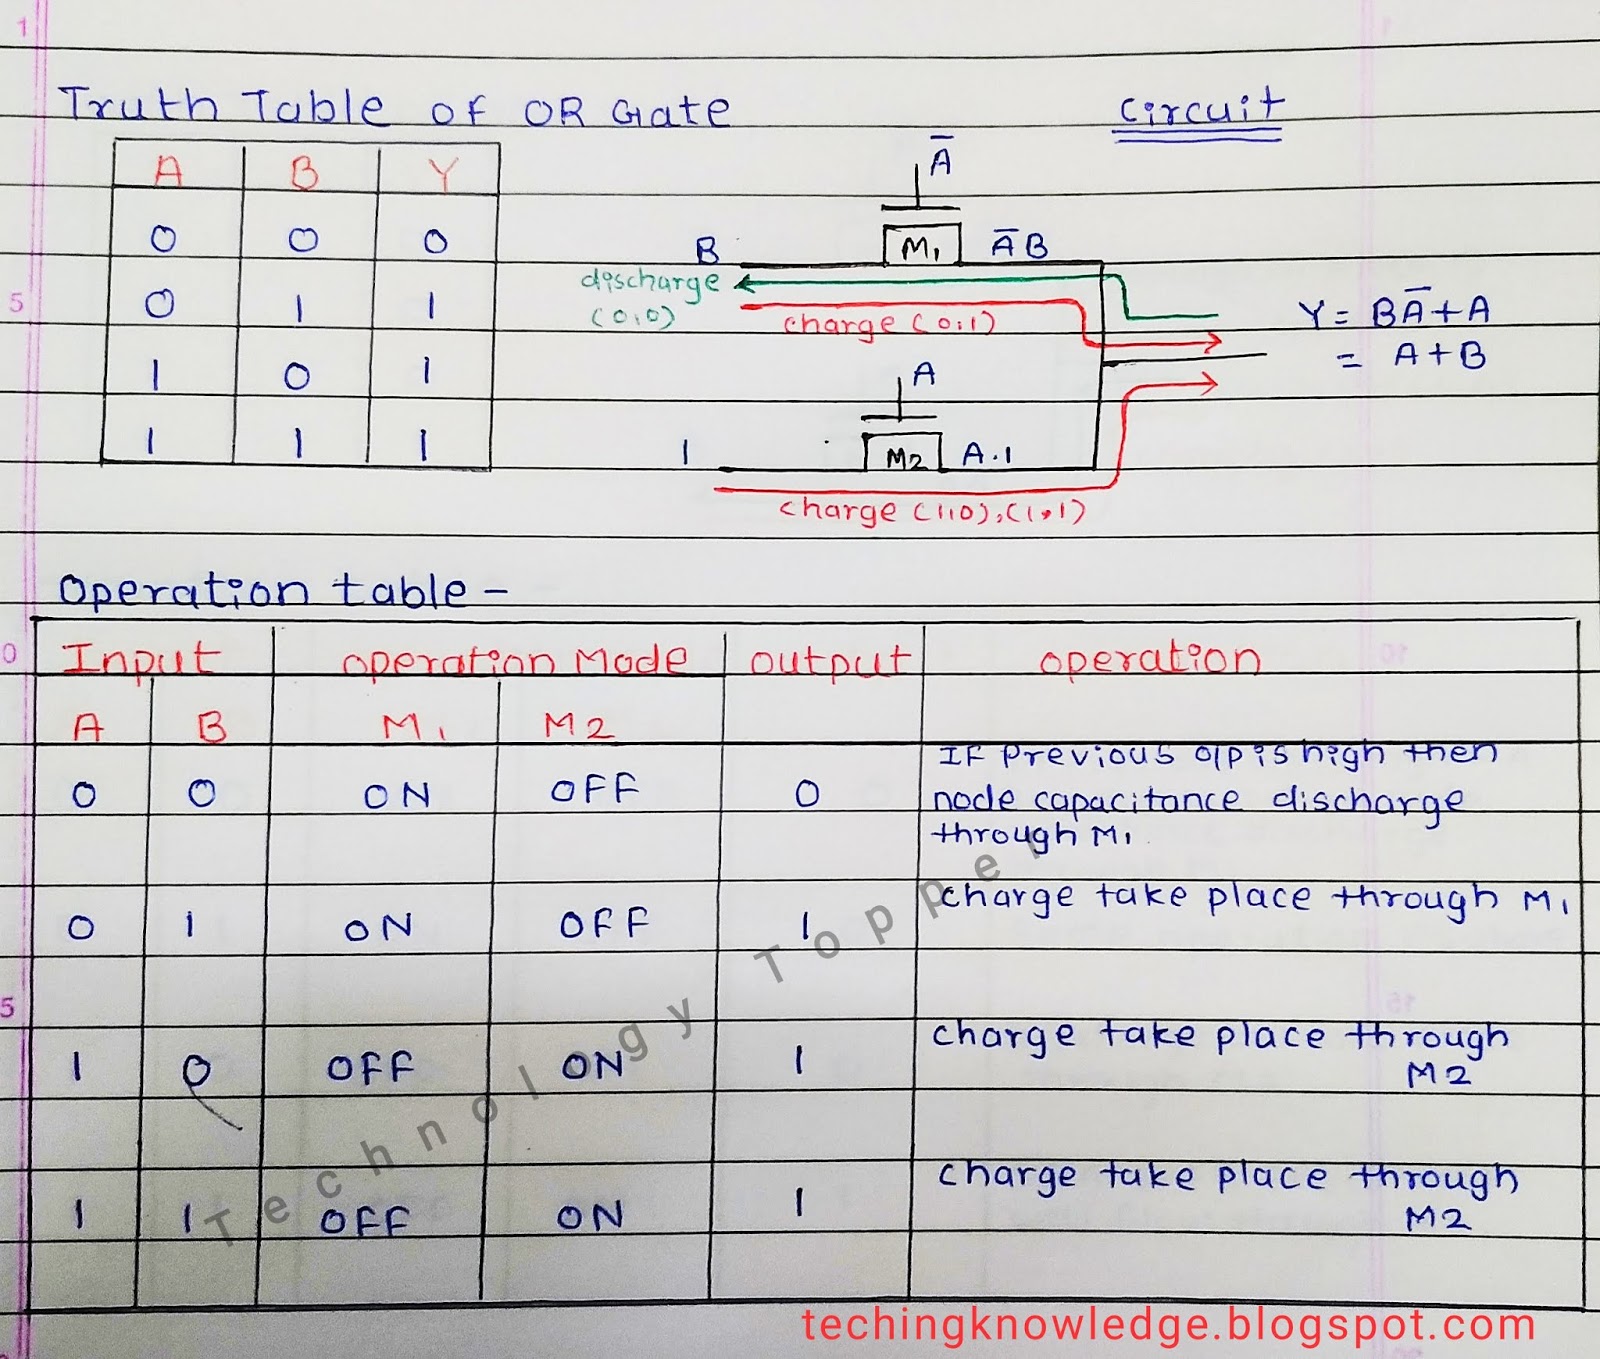 1
Truth Table of OR Gate
Circuit
A B Y
0 0 0
0 1 1
1 0 1
1 1 1
A̅
B M1 A̅B
discharge
(0,0)
charge (0,1)
Y = BA̅+A
= A+B
A
1 M2 A.1
charge (1,0),(1,1)
5
Operation table -
0
Input operation Mode output operation
A B M1 M2
0 0 ON OFF 0 If Previous o/p is high then
node capacitance discharge
through M1.
0 1 ON OFF 1 charge take place through M1
5
1 0 OFF ON 1 charge take place through
M2
1 1 OFF ON 1 charge take place through
M2
Technology Topper
techingknowledge.blogspot.com